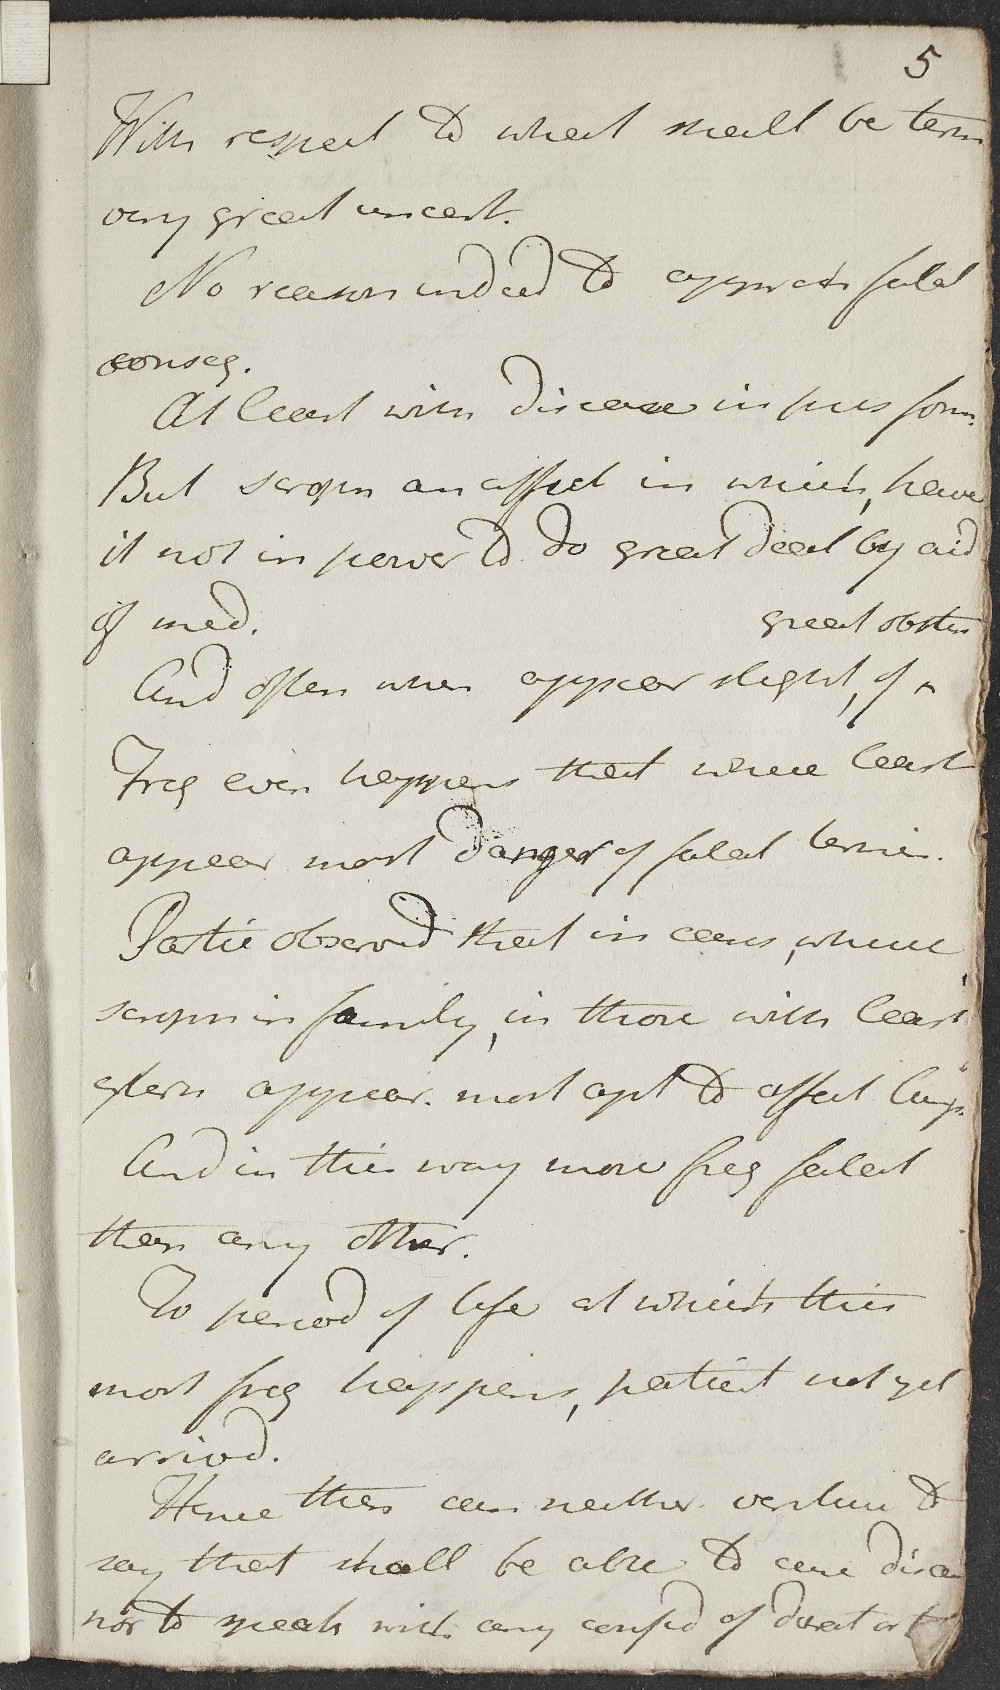 5
With respect to what shall be term
very great uncert.
No reason indeed to appreh fatal
conseq.
At least with disease in pres form.
But scroph an affect in which, have
it not in power to do great deal by aid
of med.
great obstin
And often when appear slight, of ^
Freq even happens that where least
appear most danger of fatal termin.
Partic observd that in cases, where
scroph in family, in those with least
extern appear. most apt to affect lungs.
And in this way more freq fatal
than any other.
To period of life at which this
most freq happens, patient not yet
arrivd.
Hence then can neither venture to
say that shall be able to cure disea
nor to speak with any confid of durat or